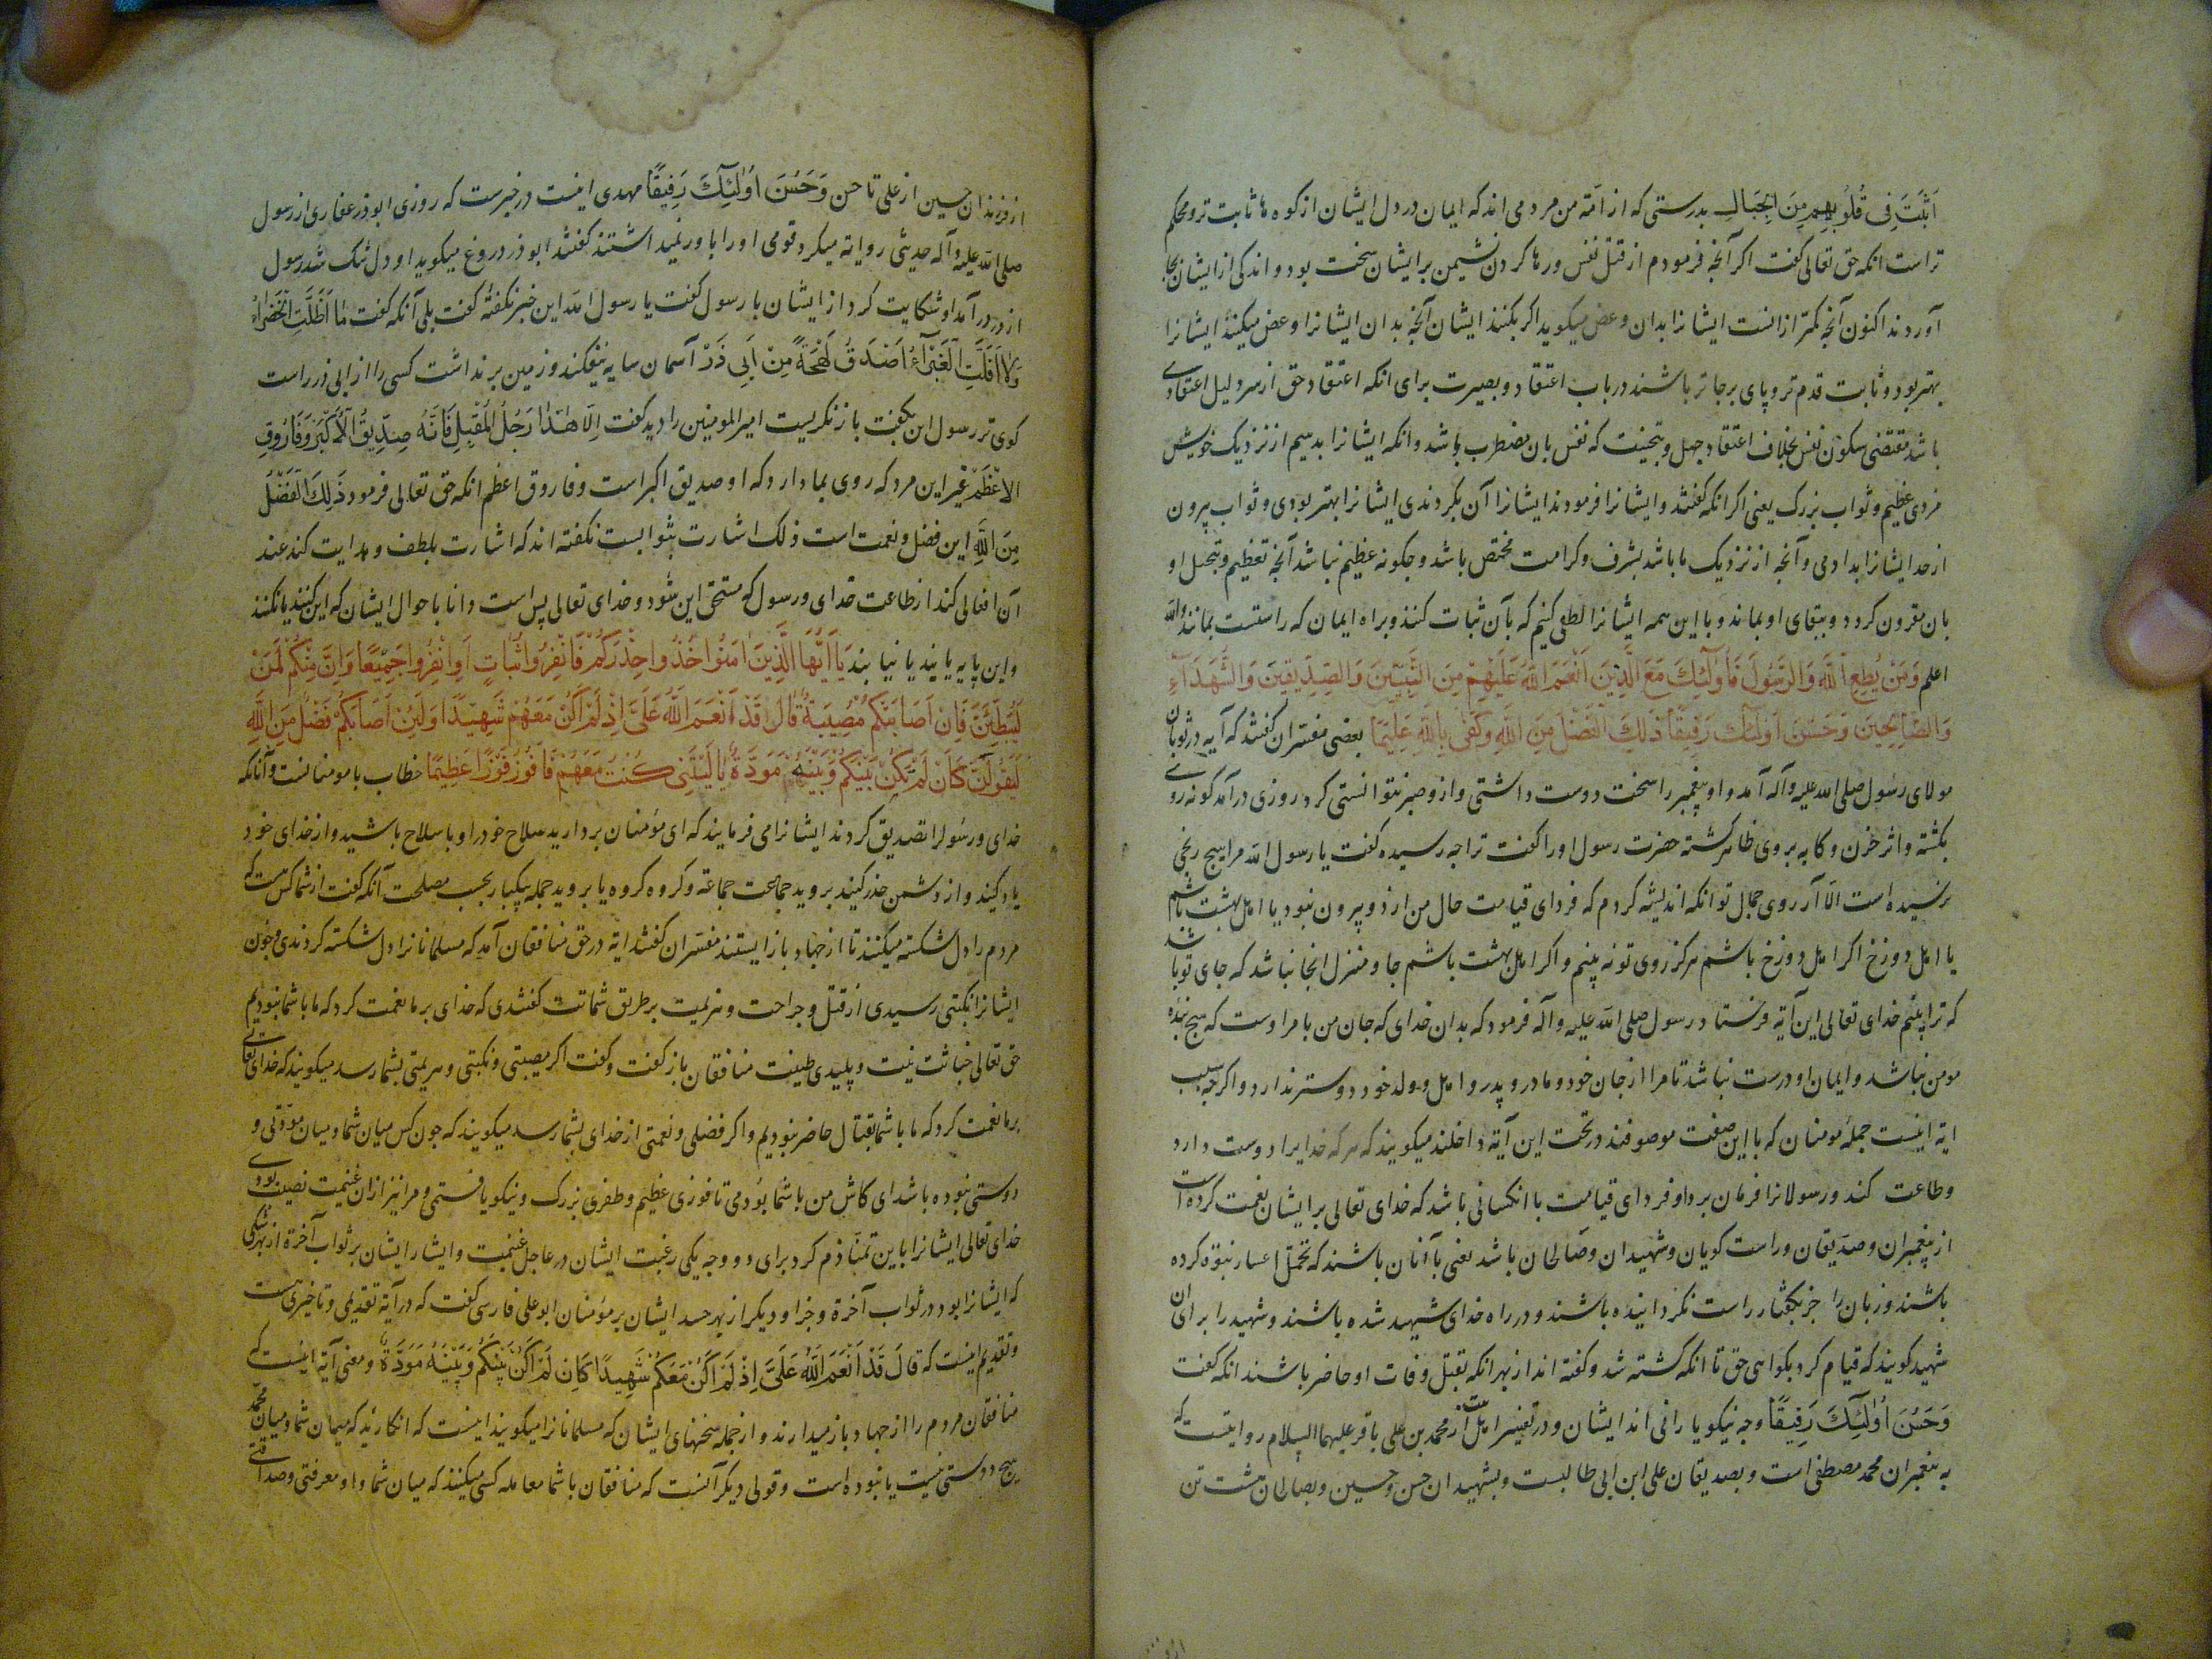 اَثْبَتَ فِی قُلُوبِهِم مِنَ الْجِبَالِ بدرستی که از امّة من مردمی اند که ایمان در دل ایشان از کوه ها ثابت تر و محکم
تر است انکه حق تعالی کفت اکر آنچه فرمودم از قتل نفس و رها کردن نشیمن بر ایشان سخت بود و اندکی از ایشان بجا
آوردند اکنون آنچه کمتر از انست ایشانرا بدان وعض میکوید اکر بکنند ایشان آنچه بدان ایشانرا وعض میکنند ایشانرا
بهتر بود و ثابت قدم تر و پای برجا تر باشند در باب اعتقاد و بصیرت برای انکه اعتقاد حق از سر دلیل اعتقادی
باشد مقتضی سکون نفس بخلاف اعتقاد جهل و تبخیت که نفس بان مضطرب باشد و انکه ایشانرا بدهیم از نزدیک خویش
مزدی عظیم و ثواب بزرک یعنی اکر انکه کفتند و ایشانرا فرمودند ایشانرا آن بکردندی ایشانرا بهتر بودی و ثواب بیرون
از حد ایشانرا بدادمی و آنچه از نزدیک ما باشد بشرف و کرامت مختص باشد و چکونه عظیم نباشد آنچه تعظیم و تبجیل او
بان مقرون کردد و ببقای او بماند و با این همه ایشانرا لطفی کنیم که بآن ثبات کنند و براه ایمان که راستست بمانند والله
اعلم وَمَنْ یُطِعِ اللّهَ وَالرَّسُولَ فَاُولٰئِكَ مَعَ الَّذِینَ اَنْعَمَ اللّهُ عَلَیْهِمْ مِنَ النَّبِیّینَ وَالصِّدِیقِینَ وَالشُّهَدَآءِ
وَالصَّالِحِینَ وَحَسُنَ اُولٰئِكَ رَفِیقًا ذٰلِكَ الْفَضْلُ مِنَ اللّهِ وَكَفٰی بِاللّهِ عَلِیمًا بعضی مفسّران کفتند که آیه در ثوبان
مولای رسول صلی الله علیه وآله آمد و او پیغمبر را سخت دوست داشتی و از و صبر نتوانستی کرد روزی درآمد کونه روی
بکشته و اثر حزن و کابه بروی ظاهر کشته حضرت رسول او را کفت ترا چه رسیده کفت یا رسول الله مرا هیچ رنجی
نرسیده است الّا آرزوی جمال تو انکه اندیشه کردم که فردای قیامت حال من از دو بیرون نبود یا اهل بهشت باشم
یا اهل دوزخ اکر اهل دوزخ باشم هرکز روی تو نه بینم و اکر اهل بهشت باشم جا و منزل انجا نباشد که جای تو باشد
که ترا بینم خدای تعالی این آیة فرستاد رسول صلی الله علیه وآله فرمود که بدان خدای که جان من بامر اوست که هیچ بنده
مومن نباشد و ایمان او درست نباشد تا مرا از جان خود و مادر و پدر و اهل و ولد خود دوستر ندارد و اکرچه سبب
ایة اینست جملهٔ مومنان که با این صفت موصوفند در تحت این آیة داخلند میکویند که هر که خدایرا دوست دارد
وطاعت کند و رسولانرا فرمان برد او فردای قیامت با انکسانی باشد که خدای تعالی بر ایشان نعمت کرده است
از پیغمبران و صدّیقان و راست کویان و شهیدان و صالحان باشد یعنی با آنان باشند که تحمّل اعبار نبوّة کرده
باشند و زبان را جز بکفتار راست نکردانیده باشند و در راه خدای شهید شده باشند و شهید را برای ان
شهید کویند که قیام کرد بکواهی حق تا انکه کشته شد و کفته اند از بهر انکه بقتل وفات او حاضر باشند انکه کفت
وَحَسُنَ اُولٰئِكَ رَفِیقًا وچه نیکو یارانی اند ایشان و در تفسیر اهل بیت از محمد بن علی باقر علیهما السلام روایتست که
پیغمبران محمد مصطفی است و بصدیقان علی ابن ابی طالبست و بشهیدان حسن و حسین و بصالحان هشت تن
از فرزندان حسین از علی تا حسن وَحَسُنَ اُولٰئِكَ رَفِیقًا مهدی اینست در خبرست که روزی ابوذر غفاری از رسول
صلی الله علیه وآله حدیثی روایة میکرد قومی او را باور نمیداشتند کفتند ابوذر دروغ میکوید او دل تنک شد رسول
از در درآمد او شکایت کرد از ایشان با رسول کفت یا رسول الله این خبر نکفتهٔ کفت بلی آنکه کفت مَا اَظَلَّتِ الْخَضْرَاءُ
وَلَا اَقَلَّتِ الْغَبْرَآءُ اَصْدَقُ لَهْجَةً مِنْ اَبِی ذَرْ آسمان سایه نیفکند و زمین برنداشت کسی را از ابی ذر راست
کوی تر رسول این بکفت باز نکریست امیر المومنین را دید کفت اِلّا هٰذَا رَجُلُ الْمُقْبِلِ فَاَنَّهُ صِدّیقُ الْاَکْبَرِ وَفَارُوقِ
الاَعْظَمْ غیر این مرد که روی بما دارد که او صدیق اکبر است و فاروق اعظم انکه حق تعالی فرمود ذٰلِكَ الْفَضْلُ
مِنَ اللّهِ این فضل و نعمت است ذلک اشارت بثوابست نکفته اند که اشارت بلطف و هدایت کند عند
آن افعالی کند از طاعت خدای و رسول که مستحق این شود و خدای تعالی بس است دانا باحوال ایشان که این کنند یا نکنند
و این پایه یابند یا نیابند یَا اَیُّهَا الَّذِینَ اٰمَنُوا خُذُوا حِذْرَكُمْ فَانْفِرُوا ثُبَاتٍ اَوِانْفِرُوا جَمِیعًا وَاِنَّ مِنْكُمْ لَمَنْ
لَیُبَطِّئَنَّ فَاِنْ اَصَابَتْكُمْ مُصِیبَةٌ قَالَ قَدْ اَنْعَمَ اللّهُ عَلَیَّ اِذْ لَمْ اَكُنْ مَعَهُمْ شَهِیدًا وَلَئِنْ اَصَابَكُمْ فَضْلٌ مِنَ اللّهِ
لَیَقُولَنَّ كَاَنْ لَمْ تَكُنْ بَیْنَكُمْ وَبَیْنَهُ مَوَدَّةٌ یَا لَیْتَنِی كُنْتُ مَعَهُمْ فَاَفُوزَ فَوْزًا عَظِیمًا خطاب با مومنانست و آنانکه
خدای و رسولرا تصدیق کردند ایشانرا می فرماید که ای مؤمنان بردارید سلاح خود را و با سلاح باشید و از خدای خود
یاد کنید و از دشمن حذر کنید بروید جماعت جماعة و کروه کروه یا بروید جمله بیکبار بحسب مصلحت آنکه کفت از شما کس هست که
مردم را دل شکسته میکنند تا از جهاد باز ایستند مفسّران کفتند ایة در حق منافقان آمد که مسلمانانرا دل شکسته کردندی و چون
ایشانرا نکبتی رسیدی از قتل و جراحت و هزیمت بر طریق شماتت کفتندی که خدای بر ما نعمت کرد که ما با شما نبودیم
حق تعالی خباثت نیت و پلیدی طینت منافقان باز کفت و کفت اکر مصیبتی و نکبتی و هزیمتی بشما رسد میکویند که خدای تعالی
بر ما نعمت کرد که ما با شما بقتال حاضر نبودیم و اکر فضلی و نعمتی از خدای بشما رسد میکویند که چون کس میان شما و میان مودّتی و
دوستی نبوده باشد ای کاش من با شما بودمی تا فوزی عظیم و ظفری بزرک و نیکو یافتمی و مرا نیز از ان غنیمت نصیب بودی
خدای تعالی ایشانرا باین تمنّا ذم کرد برای دو وجه یکی رغبت ایشان در عاجل غنیمت و ایثار ایشان بر ثواب آخرة از بهر شکی
که ایشانرا بود در ثواب آخرة و جزا و دیکر از بهر حسد ایشان بر مؤمنان ابو علی فارسی کفت که در آیة تقدیمی و تاخیری هست
و تقدیم اینست که قَالَ قَدْ اَنْعَمَ اللّهُ عَلَیَّ اِذْ لَمْ اَكُنْ مَعَكُمْ شَهِیدًا كَاَنْ لَمْ اَكُنْ بَیْنَكُمْ وَبَیْنَهُ مَوَدَّةٌ و معنی آیة اینست که
منافقان مردم را از جهاد باز میدارند و از جمله سخنهای ایشان که مسلمانانرا میکویند اینست که انکارید که میان شما و میان محمّد
هیچ دوستی نیست یا نبوده است و قولی دیکر آنست که منافقان با شما معامله کسی میکنند که میان شما و او معرفتی و صداقتی